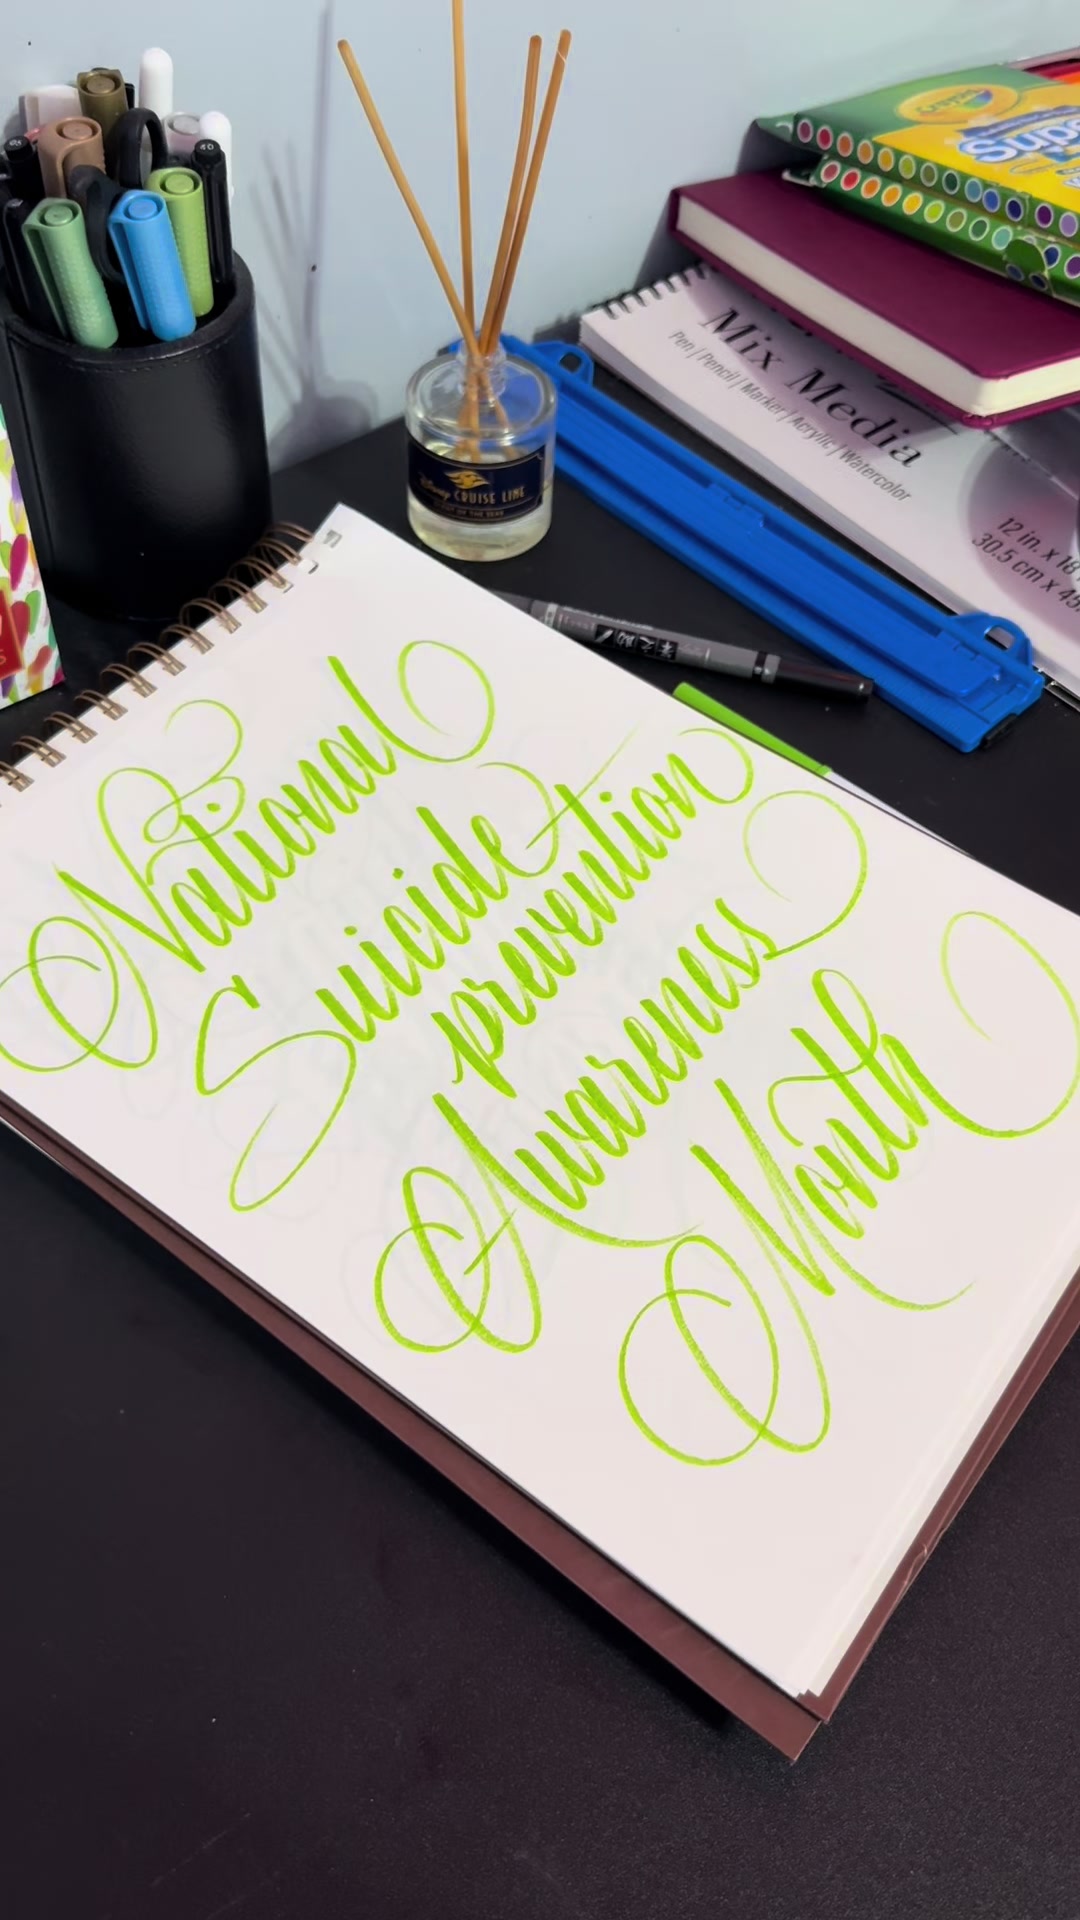 National
Suicide
prevention
Awareness
Month
Disney CRUISE LINE
Mix Media
Pen | Pencil | Marker | Acrylic | Watercolor
12 in. x 18
30.5 cm x 45